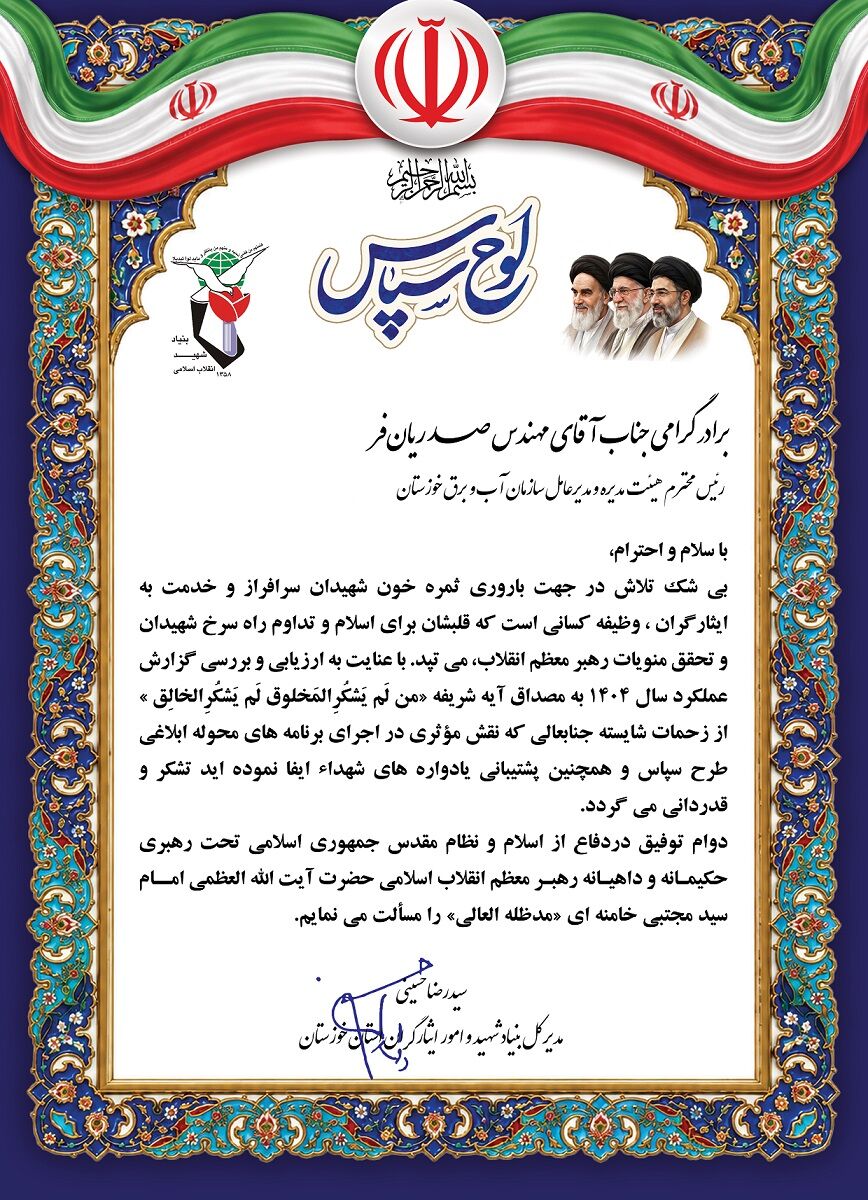 بسم الله الرحمن الرحیم
لوح سپاس
بنیاد
شهید
انقلاب اسلامی
۱۳۵۸
برادر گرامی جناب آقای مهندس صدریان‌فر
رئیس محترم هیئت مدیره و مدیرعامل سازمان آب و برق خوزستان
با سلام و احترام،
بی شک تلاش در جهت باروری ثمره خون شهیدان سرافراز و خدمت به
ایثارگران ، وظیفه کسانی است که قلبشان برای اسلام و تداوم راه سرخ شهیدان
و تحقق منویات رهبر معظم انقلاب، می تپد. با عنایت به ارزیابی و بررسی گزارش
عملکرد سال ۱۴۰۴ به مصداق آیه شریفه «من لَم یَشکُرِ المَخلوق لَم یَشکُرِ الخالِق »
از زحمات شایسته جنابعالی که نقش مؤثری در اجرای برنامه های محوله ابلاغی
طرح سپاس و همچنین پشتیبانی یادواره های شهداء ایفا نموده اید تشکر و
قدردانی می گردد.
دوام توفیق دردفاع از اسلام و نظام مقدس جمهوری اسلامی تحت رهبری
حکیمـانه و داهیـانه رهبـر معظم انقلاب اسلامی حضرت آیت الله العظمی امـــام
سید مجتبی خامنه ای «مدظله العالی» را مسألت می نمایم.
سیدرضا حسینی
مدیرکل بنیاد شهید و امور ایثارگران استان خوزستان